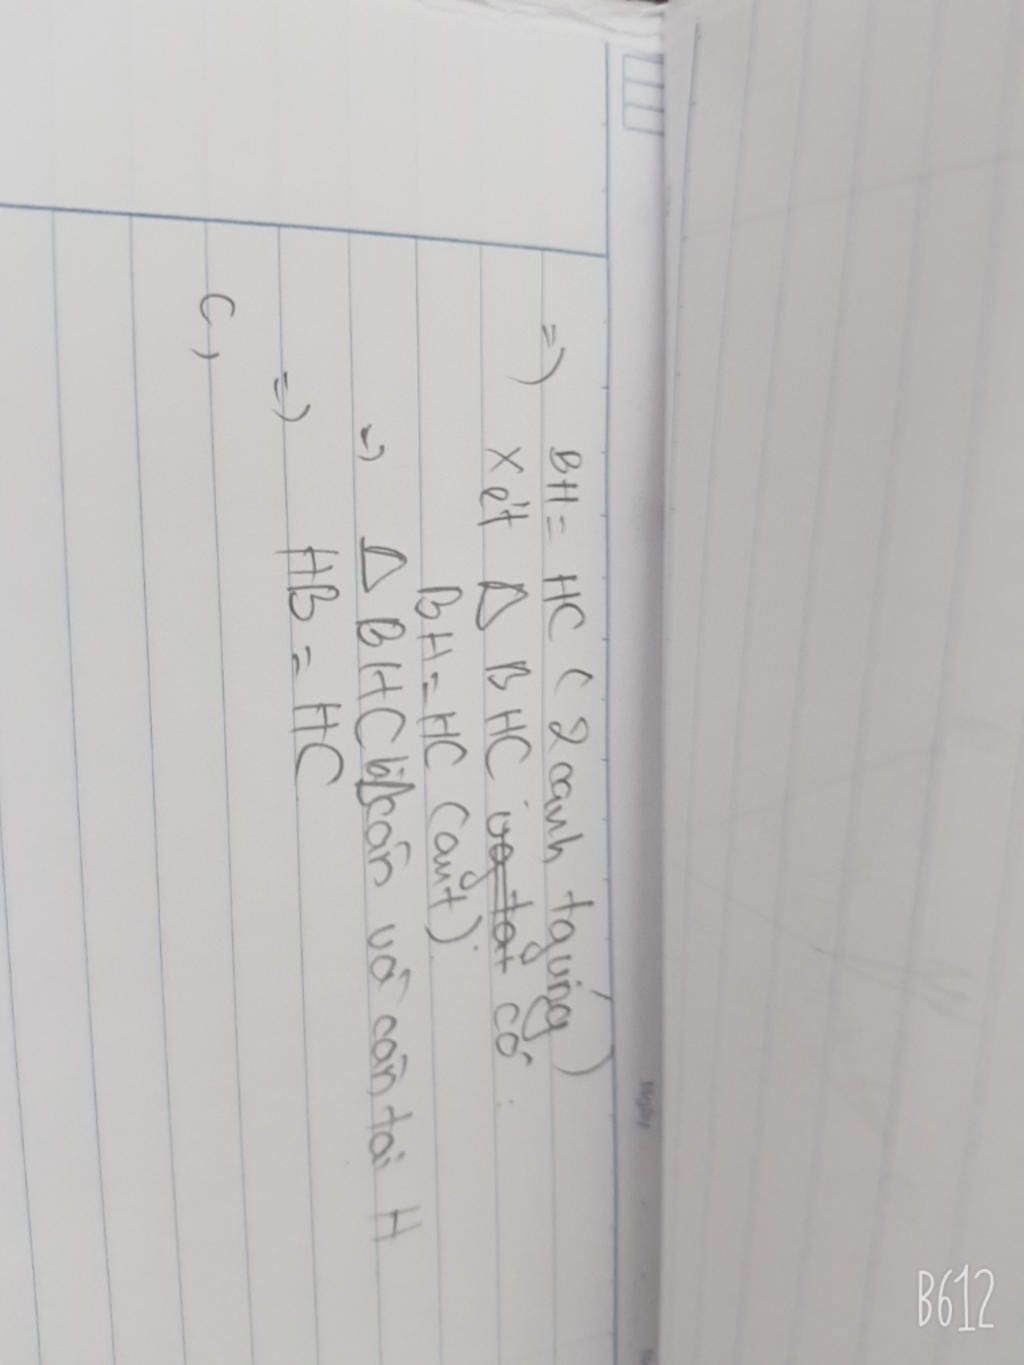 =) BH = HC (2 cạnh tg ứng)
Xét Δ BHC có:
BH = HC (cmt).
=) Δ BHC cân và cân tại H
=) HB = HC
C,
Ngày
B612